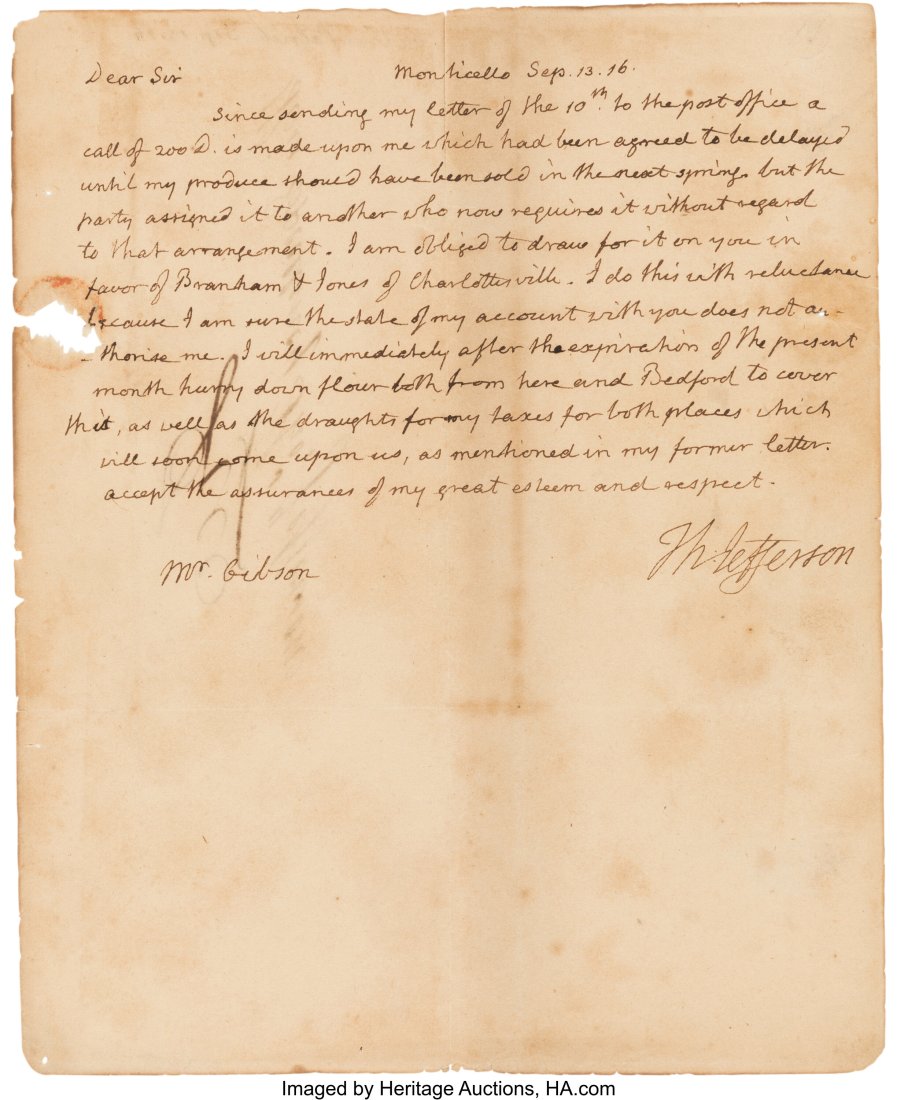 Dear Sir Monticello Sep. 13. 16.
Since sending my letter of the 10th. to the post office a
call of 200 D. is made upon me which had been agreed to be delayed
until my produce should have been sold in the next spring. but the
party assigned it to another who now requires it without regard
to that arrangement. I am obliged to draw for it on you in
favor of Branham & Jones of Charlottesville. I do this with reluctance
because I am sure the state of my account with you does not au-
-thorise me. I will immediately after the expiration of the present
month hurry down flour both from here and Bedford to cover
this, as well as the draughts for my taxes for both places which
will soon come upon us, as mentioned in my former letter.
accept the assurances of my great esteem and respect.
Th Jefferson
Mr. Gibson
Imaged by Heritage Auctions, HA.com